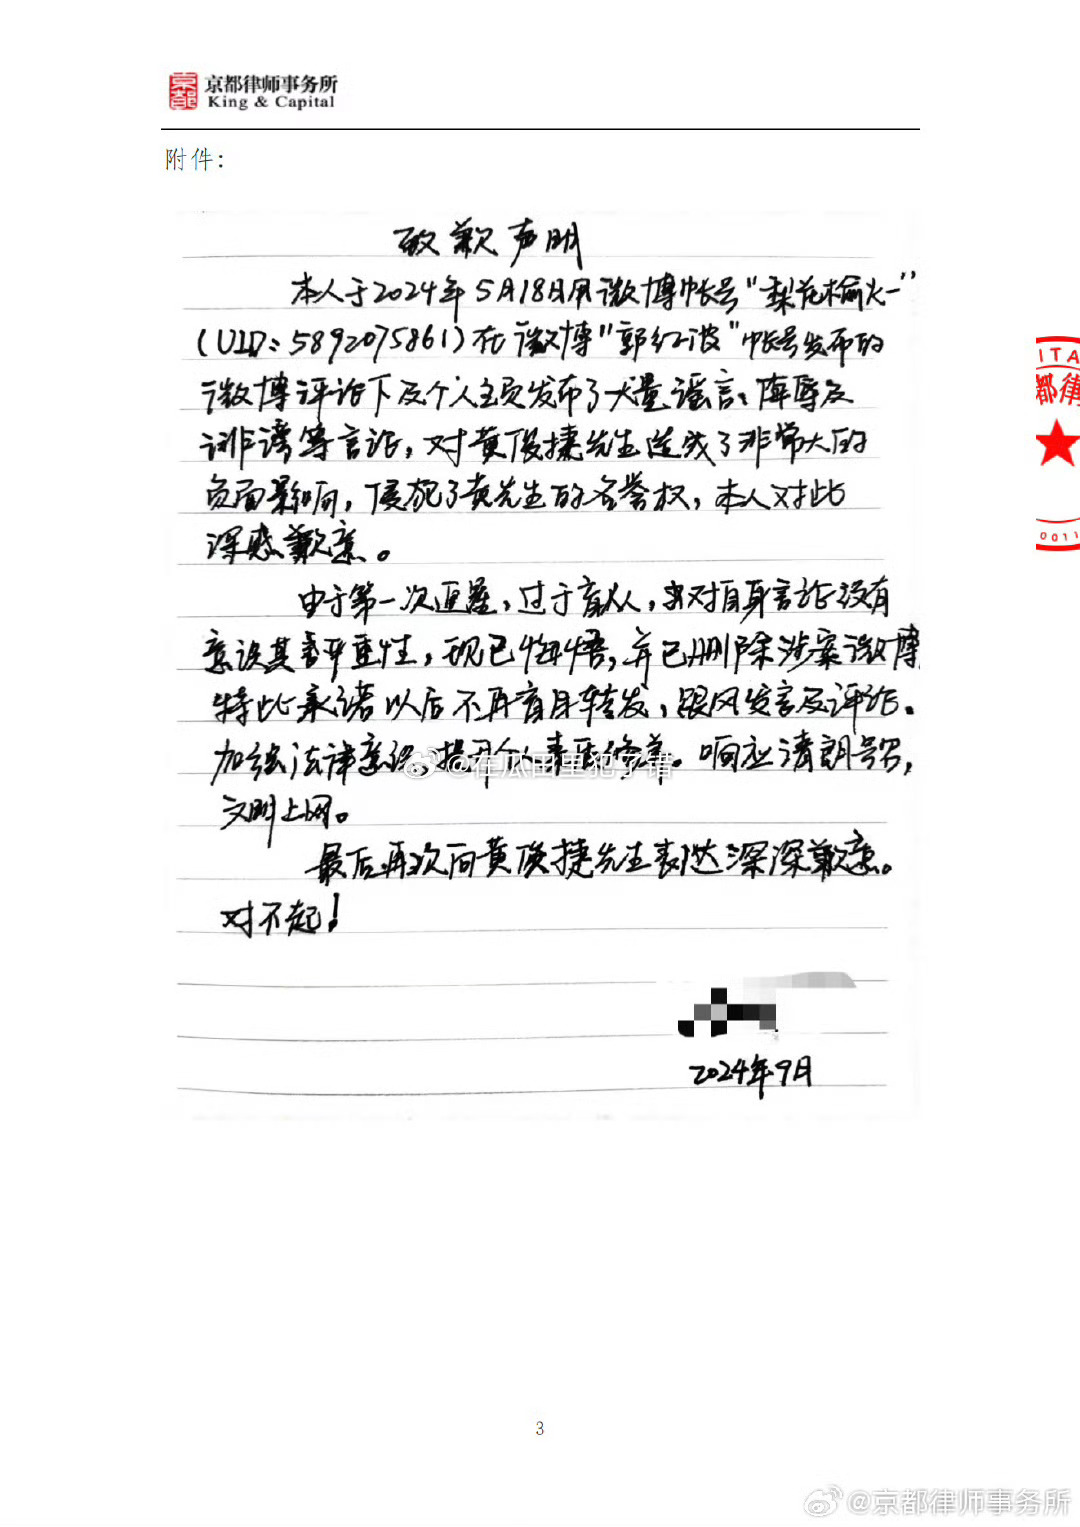 京都律师事务所
King & Capital
附件：
致歉声明
本人于2024年5月18日用微博帐号“梨花榆火一”
（UID：5892075861）在微博“郭红波”帐号发布的
微博评论下及个人主页发布了大量谣言、侮辱及
诽谤等言论，对黄俊捷先生造成了非常大的
负面影响，侵犯了黄先生的名誉权，本人对此
深感歉意。
由于第一次追星，过于盲从，对自身言论没有
意识其严重性，现已悔悟，并已删除涉案微博
特此承诺以后不再盲目转发，跟风发言及评论。
加强法律意识，提升个人素质修养。响应清朗号召，
文明上网。
最后再次向黄俊捷先生表达深深歉意。
对不起！
2024年9月
@在瓜田里犯了错
ITA
都律
0011
3
@京都律师事务所